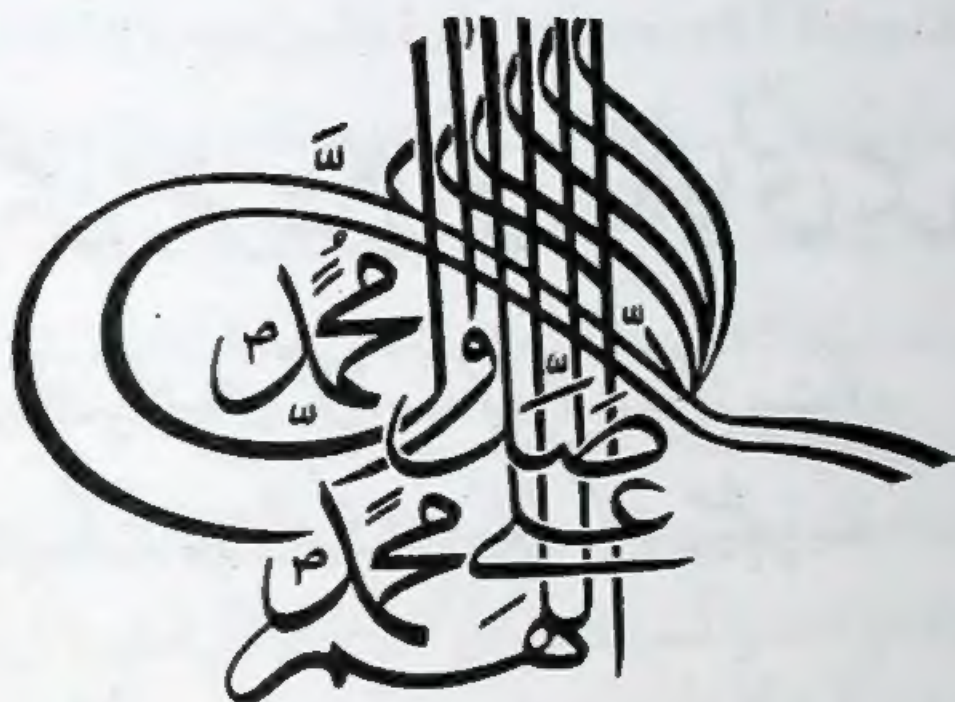 اللهم
صل على محمد
وآل محمد